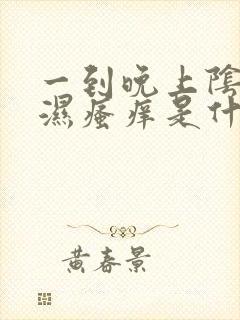 一到晚上陰
濕瘙痒是什
黄春景